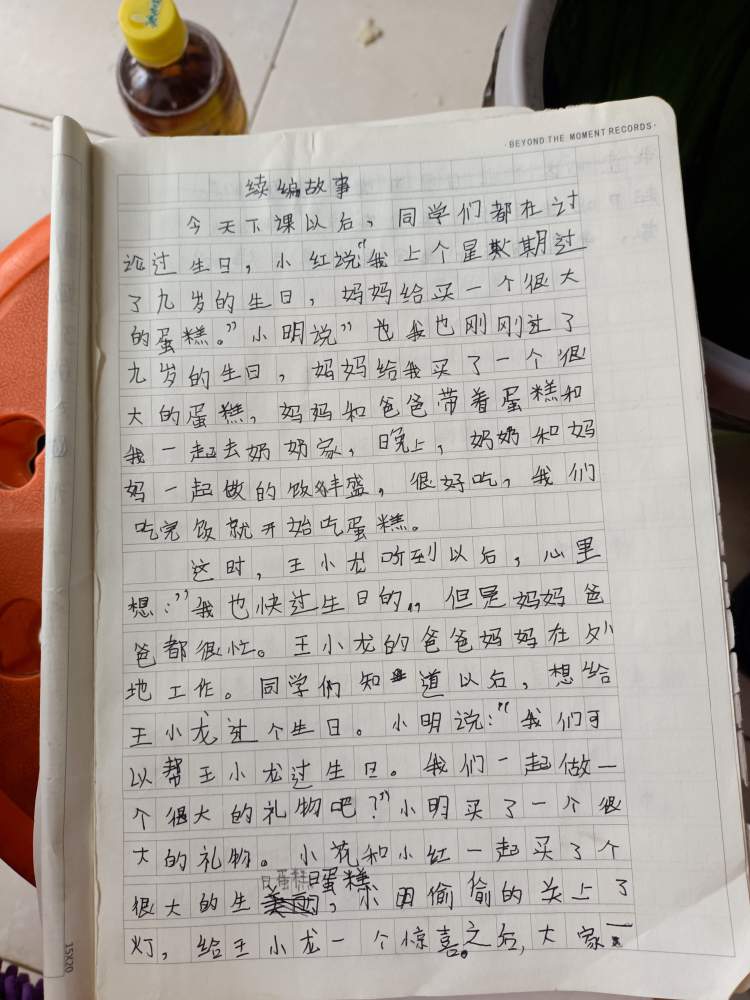 ·BEYOND THE MOMENT RECORDS·
续编故事
今天下课以后，同学们都在讨
论过生日，小红说：“我上个星期期过
了九岁的生日，妈妈给买一个很大
的蛋糕。”小明说”也我也刚刚过了
九岁的生日，妈妈给我买了一个很
大的蛋糕，妈妈和爸爸带着蛋糕和
我一起去奶奶家，晚上，奶奶和妈
妈一起做的饭丰盛，很好吃，我们
吃完饭就开始吃蛋糕。
这时，王小龙听到以后，心里
想：”我也快过生日的，，但是妈妈爸
爸都很忙。王小龙的爸爸妈妈在外
地工作。同学们知道以后，想给
王小龙过个生日。小明说：“我们可
以帮王小龙过生日。我们一起做一
个很大的礼物吧？”小明买了一个很
大的礼物。小花和小红一起买了个
日蛋糕日蛋糕
很大的生，小明偷偷的关上了
灯，给王小龙一个惊喜。之后，大家一
15X20